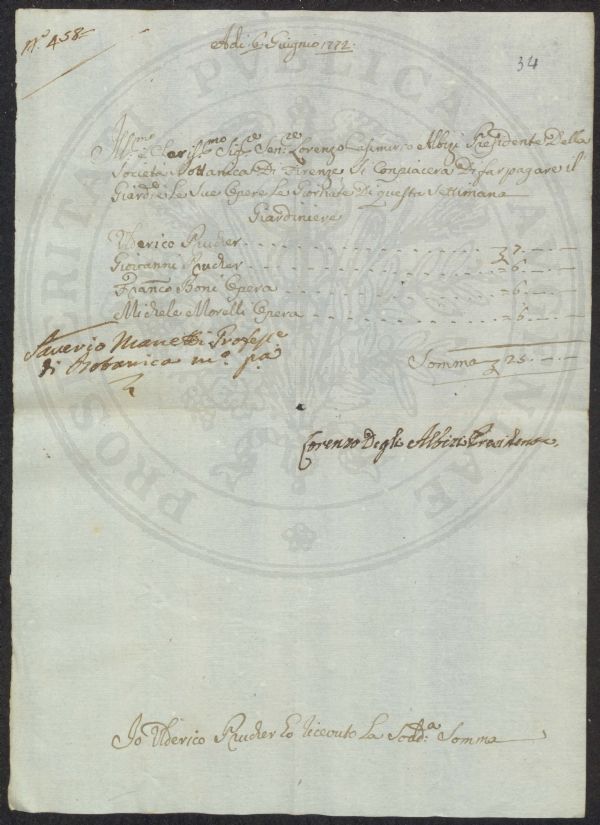 N.º 458
Adì 6 Giugnio 1772.
34
Ill.mo e Clariss.mo Sig.re Sen.re Lorenzo Casimirro Albizi Presidente Della
Società Bottanica Di Firenze Si Conpiacerà Di far pagare il
Giard.e e Le Sue Opere Le Giornate Di questa Settimana
Giardiniere
Ulderico Prucher - - - 7 - -
Giovanni Prucher - - - 6 - -
Fran.co Boni Opera - - - 6 - -
Michele Morelli Opera - - - 6 - -
Somma 25 - -
Saverio Manetti Profess.e
di Botanica m.º p.a
Lorenzo Degli Albizi Presidente
Io Ulderico Prucher ho riceouto La Sodd.a Somma
PROSPERITATI PUBLICAE